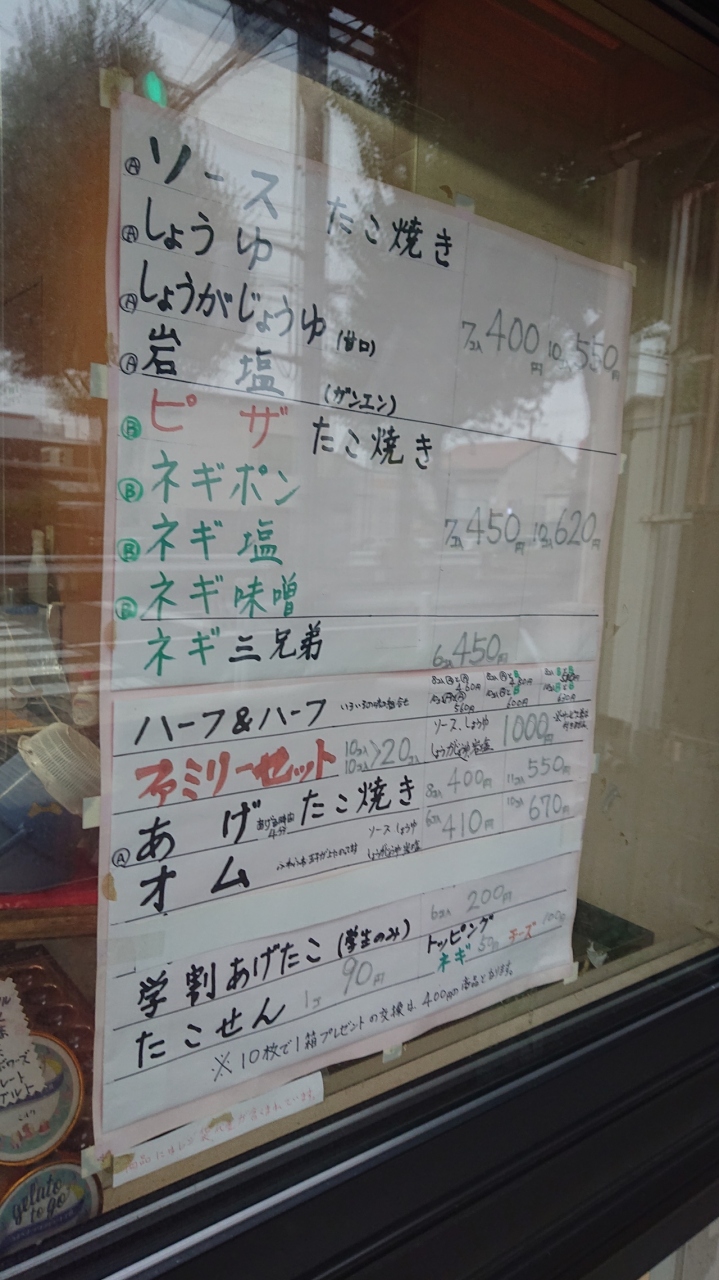 Ⓐ ソース たこ焼き
Ⓐ しょうゆ
Ⓐ しょうがじょうゆ (甘口) 7コ入 400円 10コ入 550円
Ⓐ 岩塩 (ガンエン)
Ⓑ ピザ たこ焼き
Ⓑ ネギポン
Ⓑ ネギ塩 7コ入 450円 10コ入 620円
Ⓑ ネギ味噌
ネギ三兄弟 6コ入 450円
ハーフ&ハーフ
560円 600円 630円
ファミリーセット 10コ入 10コ入 >20コ入 ソース、しょうゆ しょうがじょうゆ 岩塩 1000円
Ⓐ あげたこ焼き あげる時間 4分 8コ入 400円 11コ入 550円
オム ソース しょうゆ しょうがじょうゆ 岩塩 6コ入 410円 10コ入 670円
学割あげたこ (学生のみ) 6コ入 200円
たこせん 1コ 90円 トッピング ネギ 50円 チーズ 100円
※10枚で1箱プレゼントの交換は400円の商品となります。
gelato
to go